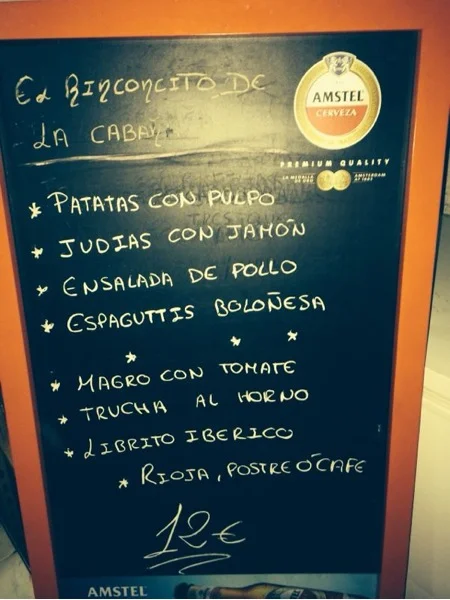 EL RINCONCITO DE
LA CABAÑ
AMSTEL
CERVEZA
PREMIUM QUALITY
LA MEDALLA DE ORO AMSTERDAM
* PATATAS CON PULPO
* JUDIAS CON JAMÓN
* ENSALADA DE POLLO
* ESPAGUTTIS BOLOÑESA
* * *
* MAGRO CON TOMATE
* TRUCHA AL HORNO
* LIBRITO IBERICO
* RIOJA, POSTRE O´CAFE
12€
AMSTEL